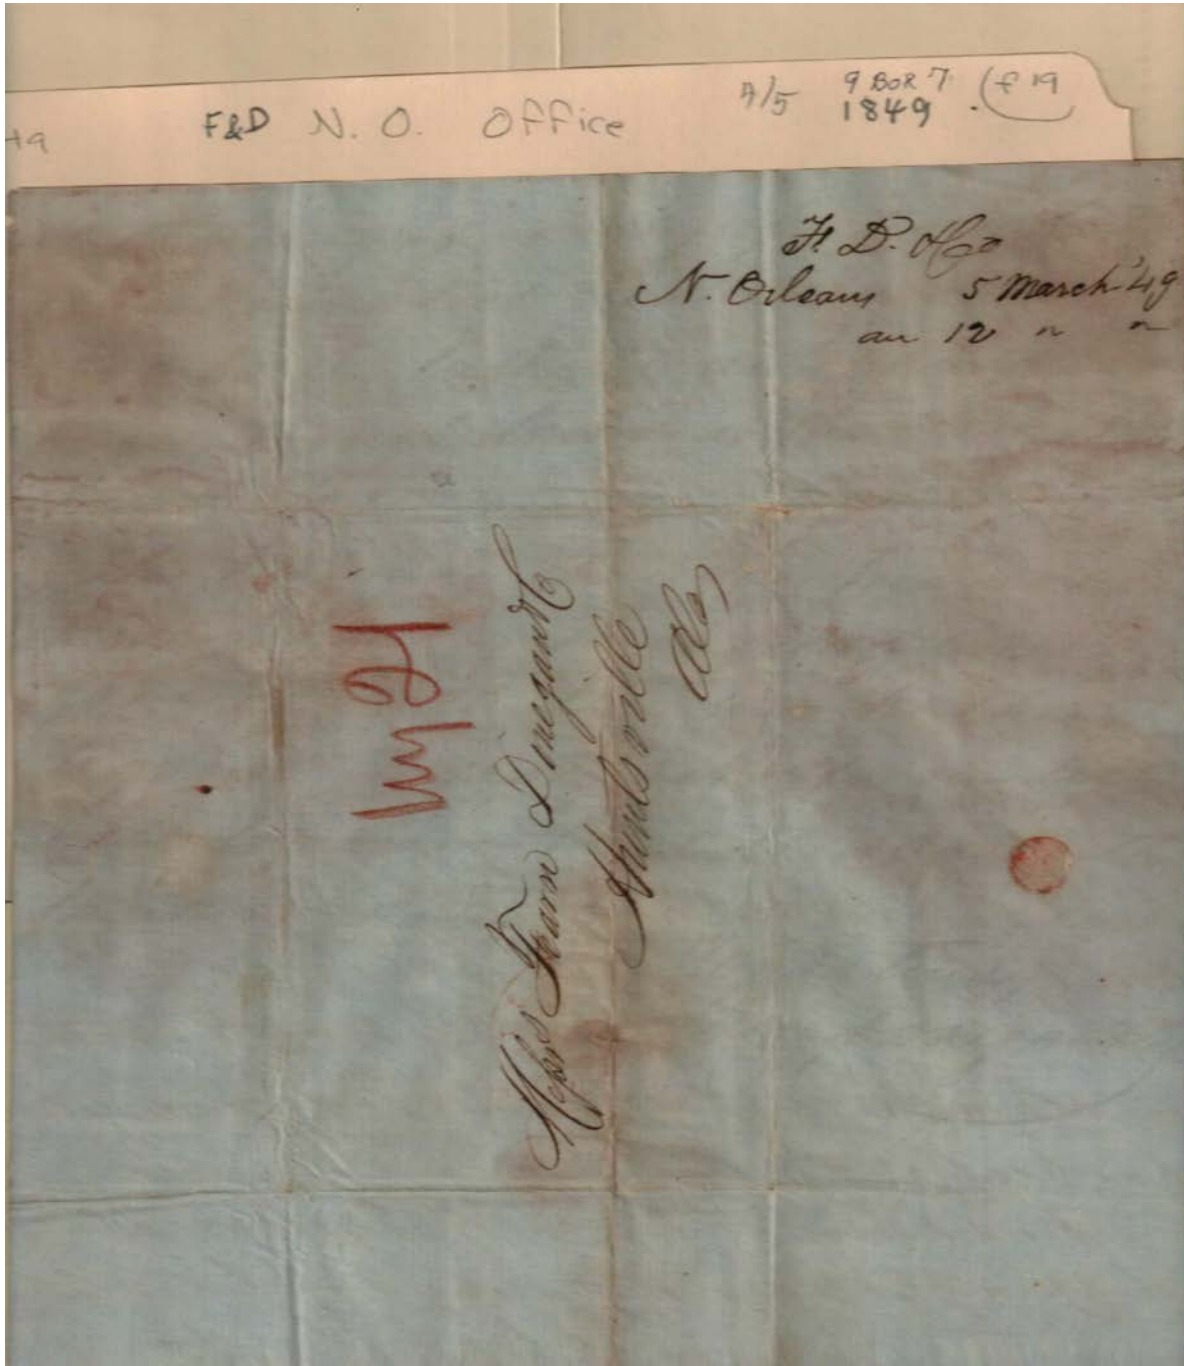 F&D N. O. Office
A/5 9 BOX 7
1849 . (f 19
F. D. & Co
N. Orleans 5 March '49
an 12 " "
Messrs Fearn Donegan & Co
Huntsville
Ala